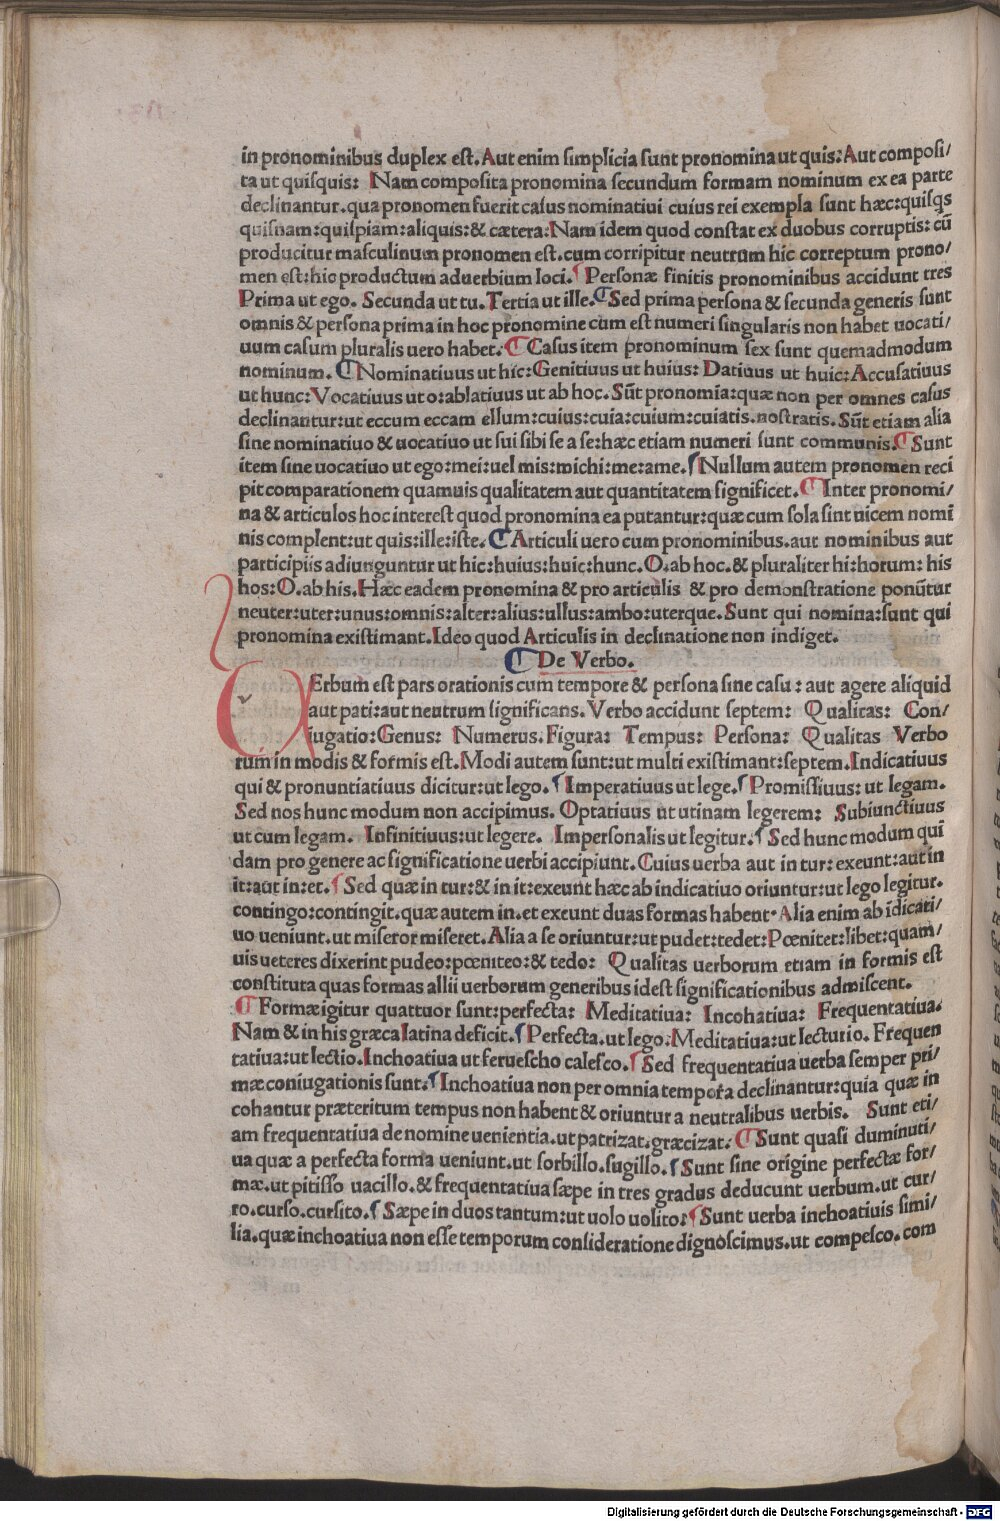 in pronominibus duplex est. Aut enim simplicia sunt pronomina ut quis: Aut composi/
ta ut quisquis: Nam composita pronomina secundum formam nominum ex ea parte
declinantur. qua pronomen fuerit casus nominatiui cuius rei exempla sunt hæc: quisqs
quisnam: quispiam: aliquis: & cætera: Nam idem quod constat ex duobus corruptis: cū
producitur masculinum pronomen est. cum corripitur neutrum hic correptum prono/
men est: hic productum aduerbium loci. ¶ Personæ finitis pronominibus accidunt tres
Prima ut ego. Secunda ut tu. Tertia ut ille. ¶ Sed prima persona & secunda generis sunt
omnis & persona prima in hoc pronomine cum est numeri singularis non habet uocati/
uum casum pluralis uero habet. ¶ Casus item pronominum sex sunt quemadmodum
nominum. ¶ Nominatiuus ut hic: Genitiuus ut huius: Datiuus ut huic: Accusatiuus
ut hunc: Vocatiuus ut o: ablatiuus ut ab hoc. Sūt pronomia: quæ non per omnes casus
declinantur: ut eccum eccam ellum: cuius: cuia: cuium: cuiatis. nostratis. Sūt etiam alia
sine nominatiuo & uocatiuo ut sui sibi se a se: hæc etiam numeri sunt communis. ¶ Sunt
item sine uocatiuo ut ego: mei: uel mis: michi: me: ame. ¶ Nullum autem pronomen reci
pit comparationem quamuis qualitatem aut quantitatem significet. ¶ Inter pronomi/
na & articulos hoc interest quod pronomina ea putantur: quæ cum sola sint uicem nomī
nis complent: ut quis: ille: iste. ¶ Articuli uero cum pronominibus. aut nominibus aut
participiis adiunguntur ut hic: huius: huic: hunc. O. ab hoc. & pluraliter hi: horum: his
hos: O. ab his. Hæc eadem pronomina & pro articulis & pro demonstratione ponūtur
neuter: uter: unus: omnis: alter: alius: ullus: ambo: uterque. Sunt qui nomina: sunt qui
pronomina existimant. Ideo quod Articulis in declinatione non indiget.
¶ De Verbo.
VErbum est pars orationis cum tempore & persona sine casu: aut agere aliquid
aut pati: aut neutrum significans. Verbo accidunt septem: Qualitas: Con/
iugatio: Genus: Numerus. Figura: Tempus: Persona: Qualitas Verbo
rum in modis & formis est. Modi autem sunt: ut multi existimant: septem. Indicatiuus
qui & pronuntiatiuus dicitur: ut lego. ¶ Imperatiuus ut lege. ¶ Promissiuus: ut legam.
Sed nos hunc modum non accipimus. Optatiuus ut utinam legerem: Subiunctiuus
ut cum legam. Infinitiuus: ut legere. Impersonalis ut legitur. ¶ Sed hunc modum quī
dam pro genere ac significatione uerbi accipiunt. Cuius uerba aut in tur: exeunt: aut in
it: aut in: et. ¶ Sed quæ in tur: & in it: exeunt hæc ab indicatiuo oriuntur: ut lego legitur.
contingo: contingit. quæ autem in. et exeunt duas formas habent. Alia enim ab īdicati/
uo ueniunt. ut miseror miseret. Alia a se oriuntur: ut pudet: tedet: Pœnitet: libet: quam/
uis ueteres dixerint pudeo: pœniteo: & tedo: Qualitas uerborum etiam in formis est
constituta quas formas allii uerborum generibus idest significationibus admiscent.
¶ Formæ igitur quattuor sunt: perfecta: Meditatiua: Incohatiua: Frequentatiua.
Nam & in his græca latina deficit. ¶ Perfecta. ut lego: Meditatiua: ut lecturio. Frequen
tatiua: ut lectio. Inchoatiua ut feruescho calesco. ¶ Sed frequentatiua uerba semper pri/
mæ coniugationis sunt. ¶ Inchoatiua non per omnia tempora declinantur: quia quæ in
cohantur præteritum tempus non habent & oriuntur a neutralibus uerbis. Sunt eti/
am frequentatiua de nomine uenientia. ut patrizat. græcizat. ¶ Sunt quasi duminuti/
ua quæ a perfecta forma ueniunt. ut sorbillo. sugillo. ¶ Sunt sine origine perfectæ for/
mæ. ut pitisso uacillo. & frequentatiua sæpe in tres gradus deducunt uerbum. ut cur/
ro. curso. cursito. ¶ Sæpe in duos tantum: ut uolo uolito: ¶ Sunt uerba inchoatiuis simi/
lia. quæ inchoatiua non esse temporum consideratione dignoscimus. ut compesco. com
Digitalisierung gefördert durch die Deutsche Forschungsgemeinschaft - DFG